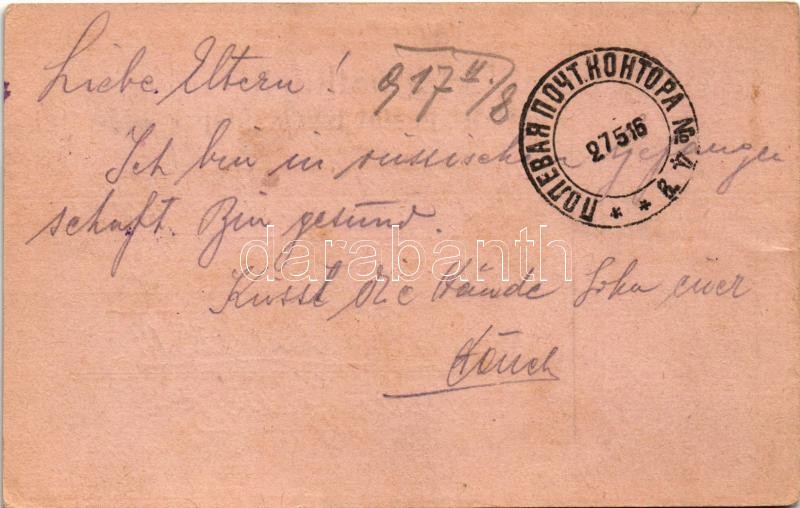 Liebe Eltern!
917 II/8
Ich bin in russischen gefangen
schaft. Bin gesund.
Küsst die Hände Sohn euer
ПОЛЕВАЯ ПОЧТ. КОНТОРА №
27516
darabanth